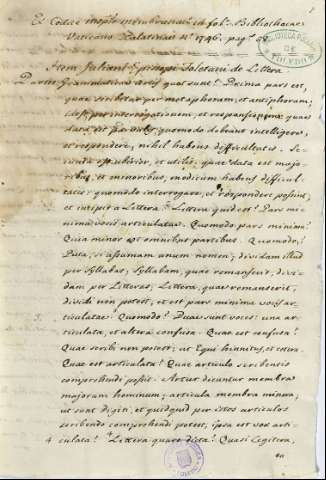 Ex Codice membranaceo in fol. Bibliothecae
Vaticanae Palatinae Nº. 1746. pag. 99.
Item Juliani Episcopi Toletani de Littera
Partes Grammaticae artis quot sunt? Decima pars est,
quae scribitur per metaphoram, et antiphoram;
idest per interrogationem, et responsionem: quae
data est parvulis, quomodo debeant intelligere,
et respondere, nihil habens difficultatis. Se-
cunda est subtilior, et utilis: quae data est majo-
ribus, et minoribus, modicum habens difficul-
tatis: quomodo interrogare, et respondere possint,
et incipit a Littera. Littera quid est? Pars mi-
nima vocis articulatae. Quomodo pars minima?
Quia minor est omnibus partibus. Quomodo?
Puta, si assumam unum nomen; dividam illud
per syllabas; Syllabam, quae remanserit, divi-
dam per Litteras; Littera, quae remanserit,
dividi non potest, et est pars minima vocis ar-
ticulatae. Quomodo? Duae sunt voces: una ar-
ticulata, et altera confusa. Quae est confusa?
Quae scribi non potest: ut Equi hinnitus, et cetera.
Quae est articulata? Quae articulo scribentis
comprehendi possit. Artus dicuntur membra
majora hominum; articula membra minora,
ut sunt digiti, et quidquid per istos articulos
scribendo comprehendi potest, ipsa est vox arti-
4 culata. 4 Littera quare dicta? Quasi Legitera,